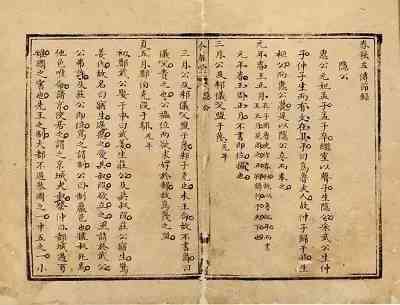 春秋左傳節錄
隱公
惠公元妃孟子孟子卒繼室以聲子生隱公宋武公生仲
子仲子生而有文在其手曰為魯夫人故仲子歸于我生
桓公而惠公薨是以隱公立而奉之
元年春王正月
元年春王周正月不書即位攝也
三月公及邾儀父盟于蔑元年
三月公及邾儀父盟于蔑邾子克也未王命故不書爵曰
儀父貴之也公攝位而欲求好於邾故為蔑之盟
夏五月鄭伯克段于鄢元年
初鄭武公娶于申曰武姜生莊公及共叔段莊公寤生驚
姜氏故名曰寤生遂惡之愛共叔段欲立之亟請於武公
公弗許及莊公即位為之請制公曰制巖邑也虢叔死焉
他邑唯命請京使居之謂之京城大叔祭仲曰都城過百
雉國之害也先王之制大都不過參國之一中五之一小